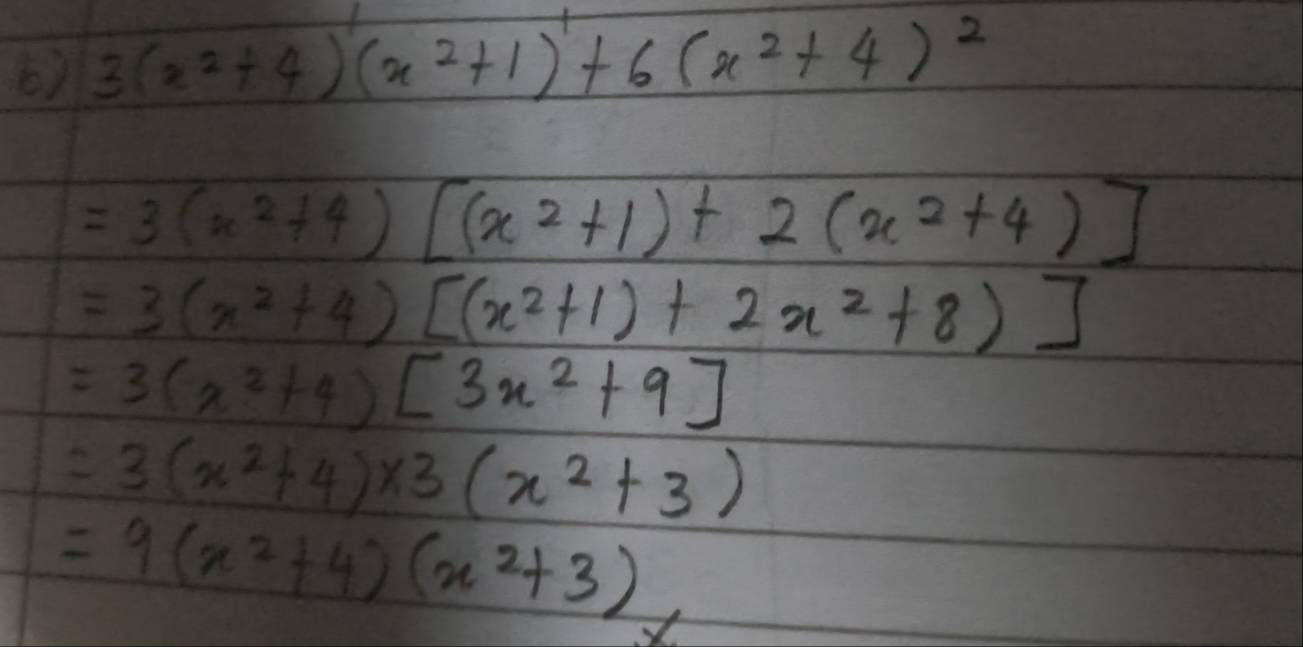 b) 3(x²+4)(x²+1)+6(x²+4)²
= 3(x²+4)[(x²+1)+ 2(x²+4)]
= 3(x²+4)[(x²+1)+ 2x²+8)]
= 3(x²+4)[3x²+9]
= 3(x²+4)×3(x²+3)
= 9(x²+4)(x²+3)